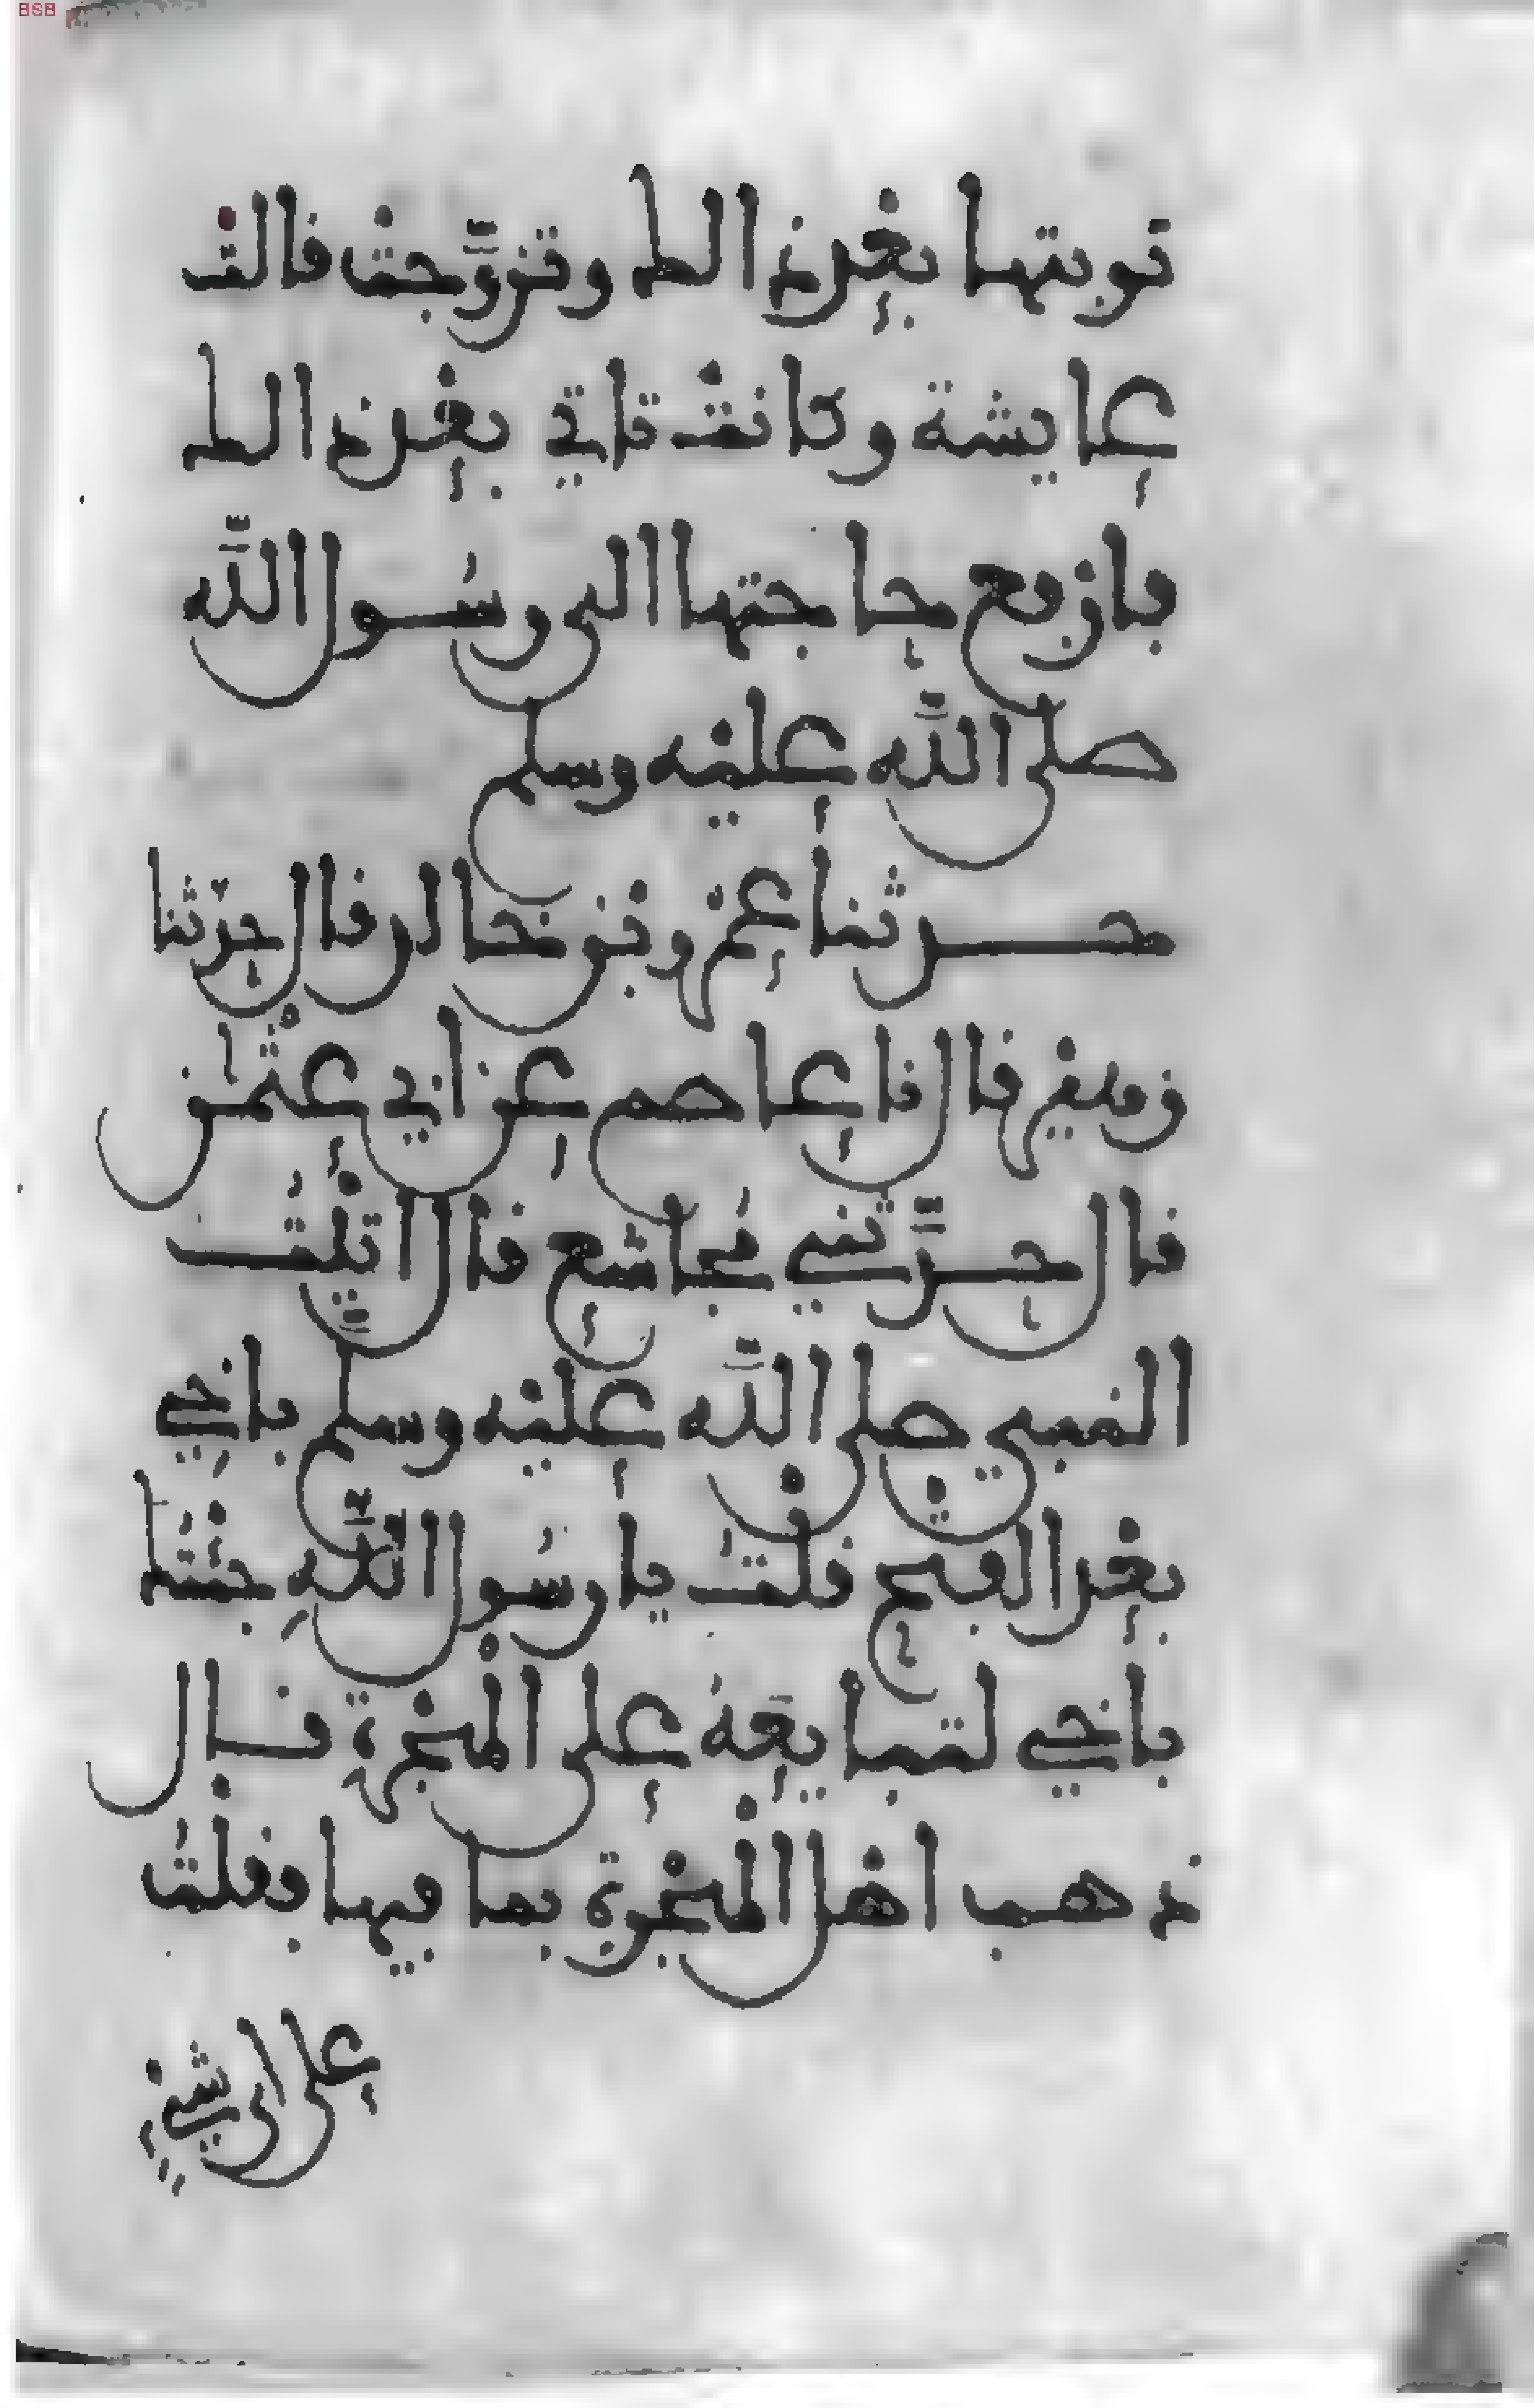 توبتها بعد ذالط وتزوجت قالت
عايشة وكانت تاتي بعد ذالط
فارفع حاجتها الى رسول الله
صلى الله عليه وسلم
حدثنا عمرو بن خالد قال حدثنا
زهير قال نا عاصم عن ابي عثمن
قال حدثني مجاشع قال اتيت
النبي صلى الله عليه وسلم باخي
بعد الفتح قلت يا رسول الله جئتك
باخي لتبايعه على الهجرة قال
ذهب اهل الهجرة بما فيها فقلت
على اي شيء